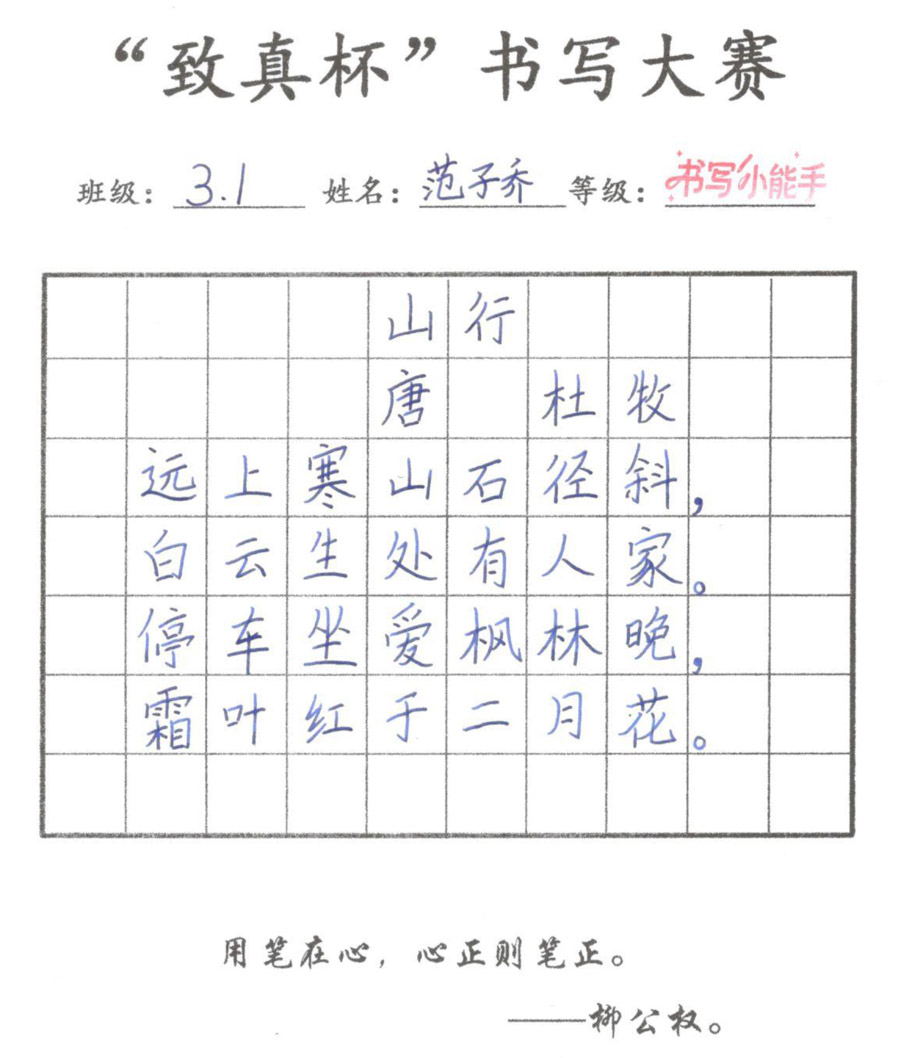 “致真杯”书写大赛
班级：3.1 姓名：范子乔 等级：书写小能手
山行
唐 杜牧
远上寒山石径斜，
白云生处有人家。
停车坐爱枫林晚，
霜叶红于二月花。
用笔在心，心正则笔正。
——柳公权。